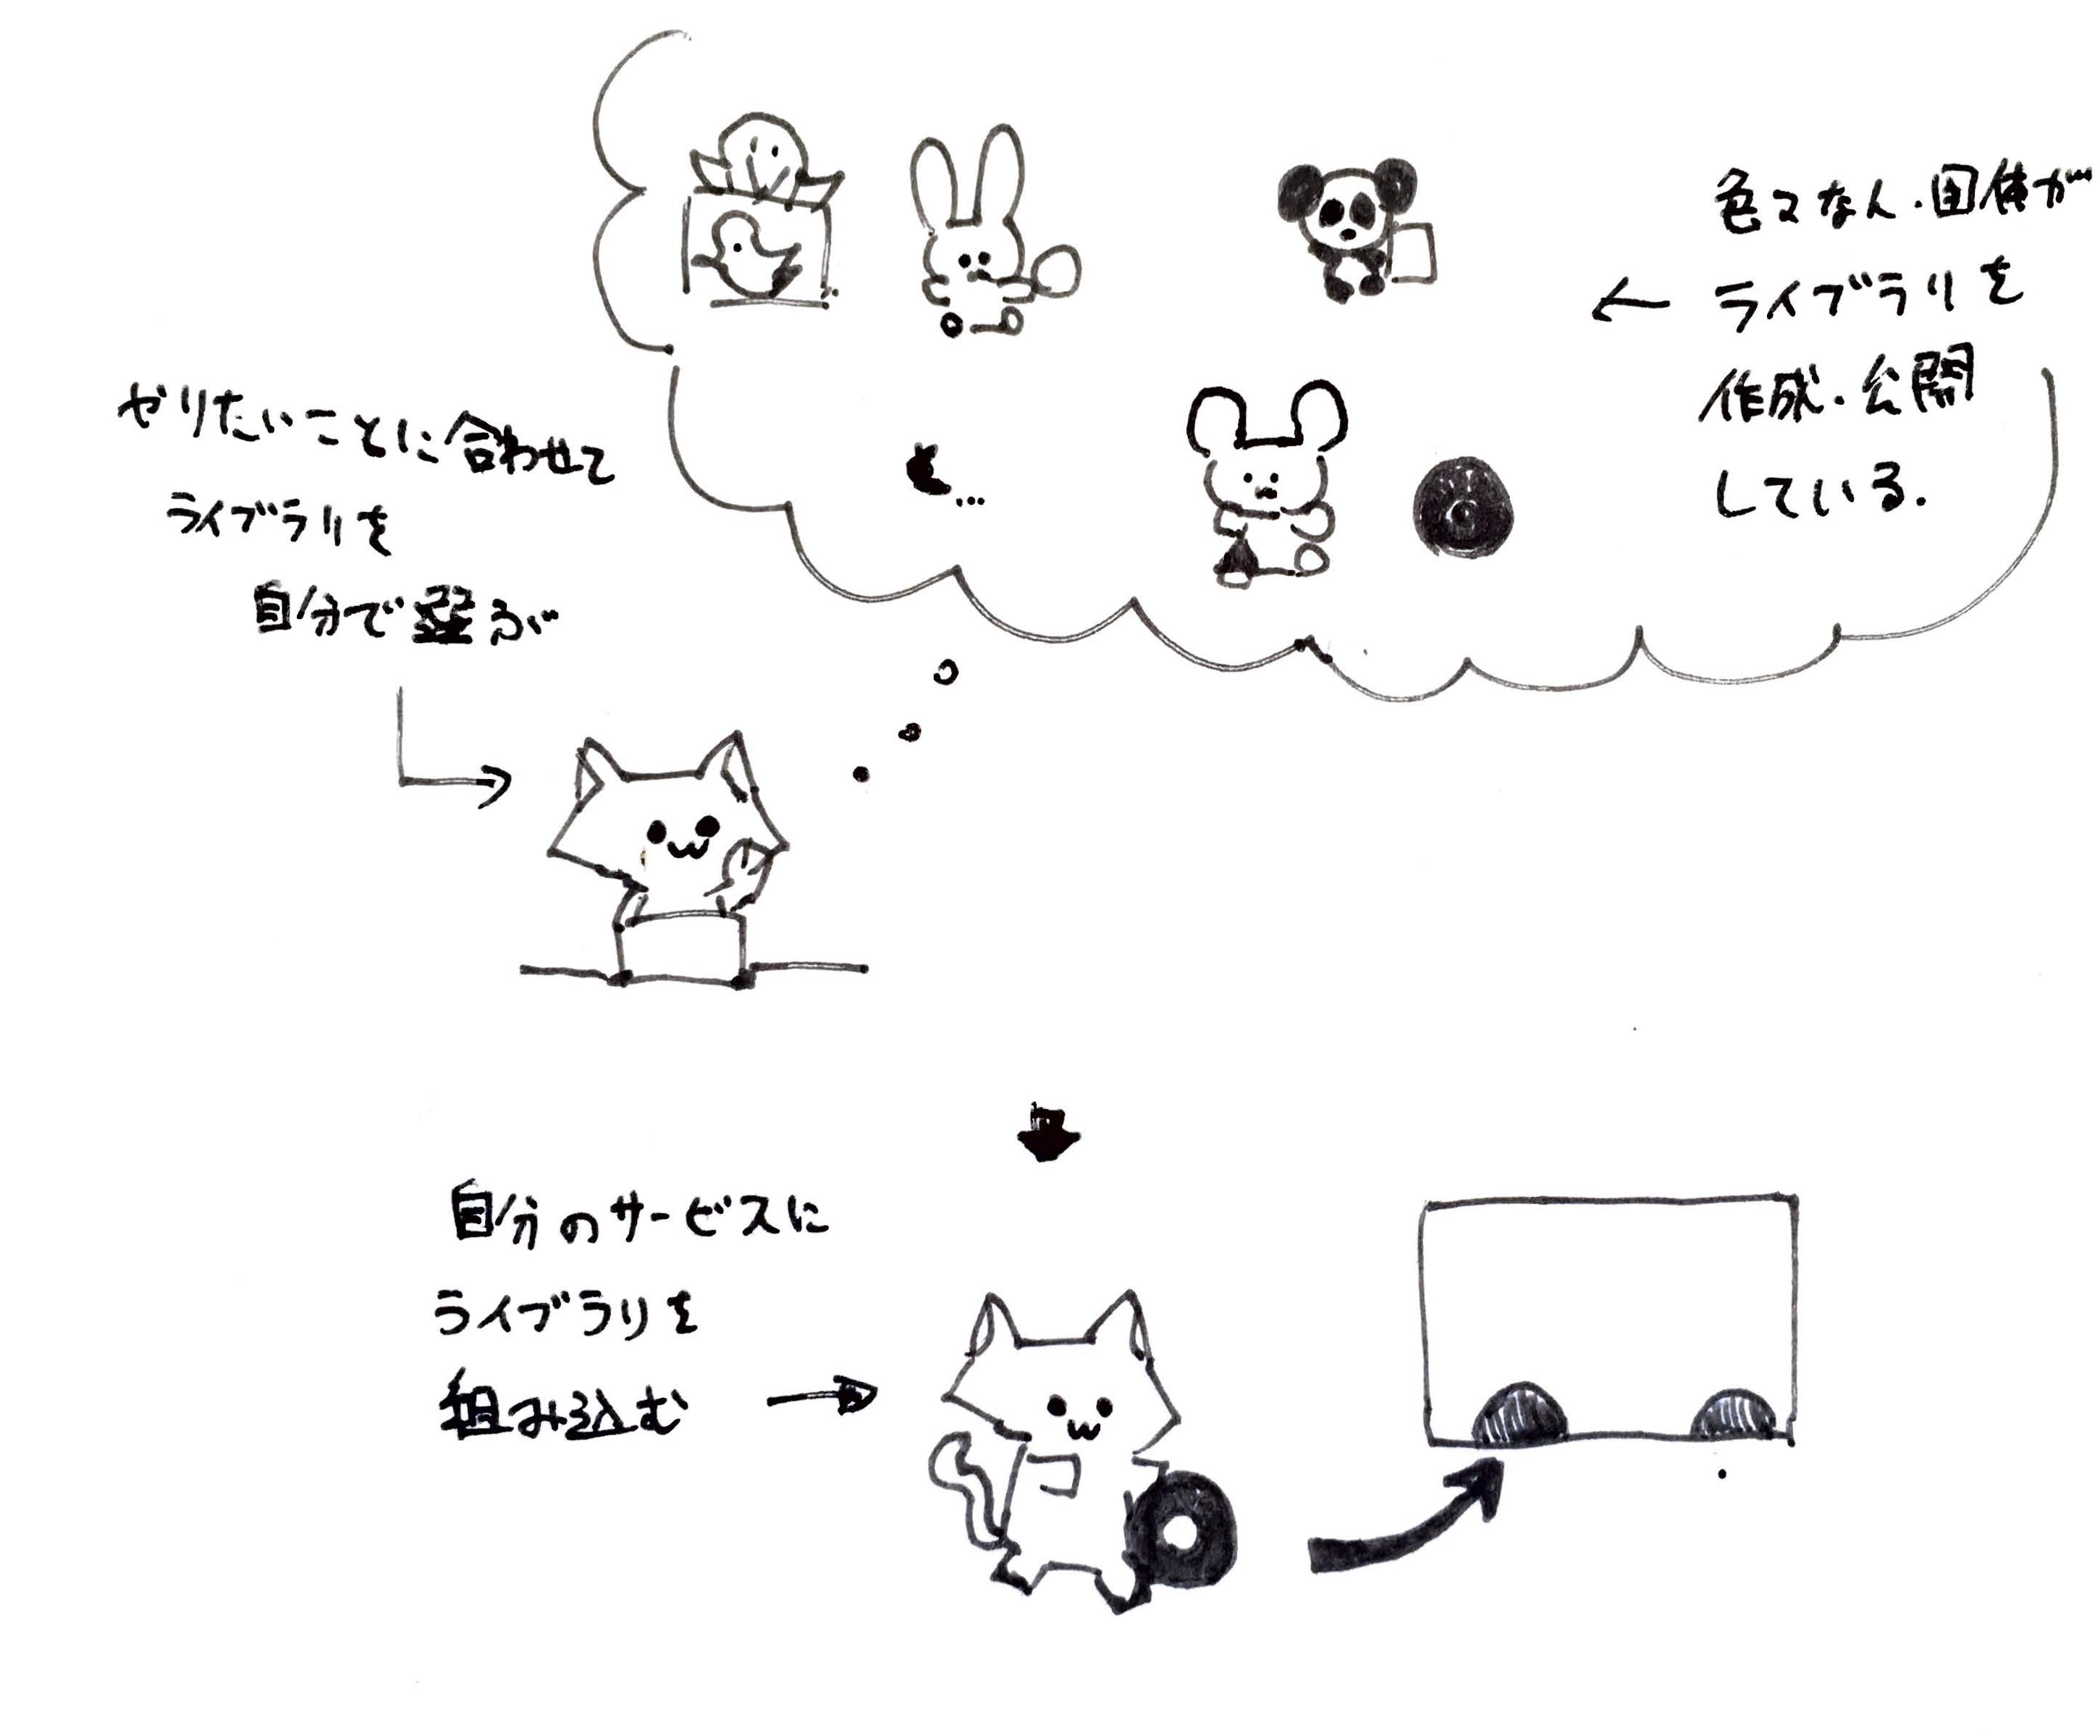 色々な人・団体が
ライブラリを
作成・公開
している.
やりたいことに合わせて
ライブラリを
自分で選ぶ
自分のサービスに
ライブラリを
組み込む